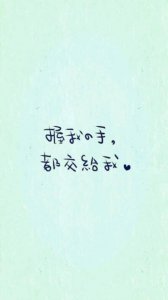 握我の手，
都交給我。